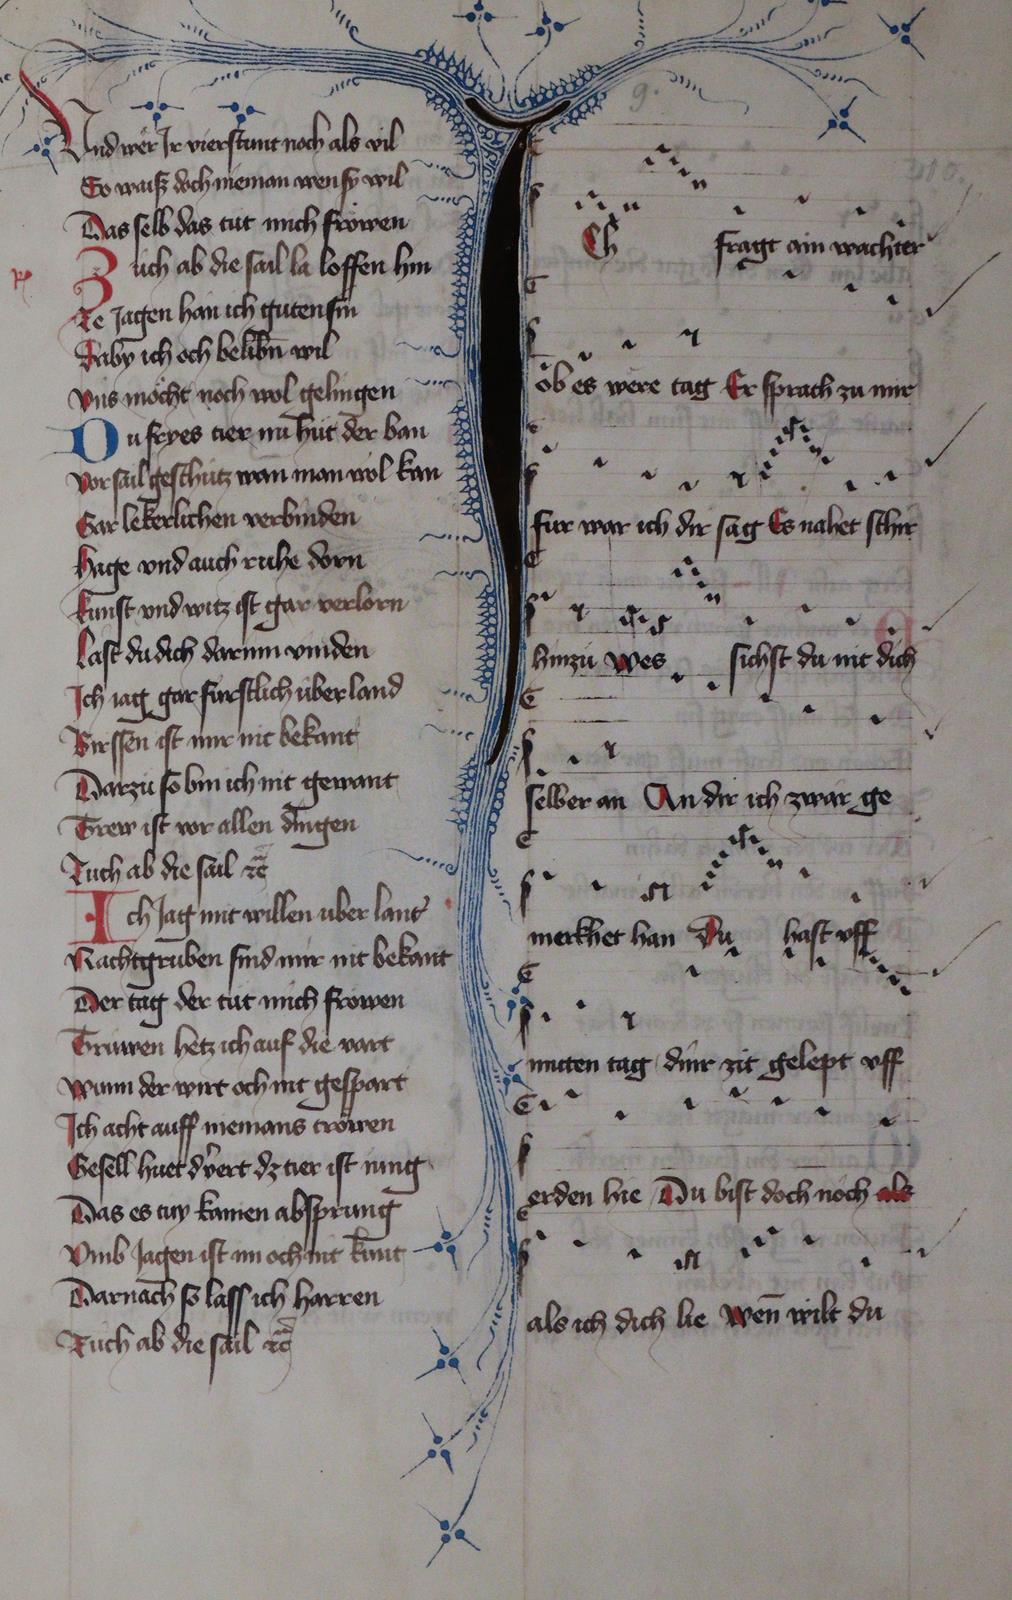 Vnd wer Jr vierstunt noch als vil
So waisz doch nieman wen sy wil
Das selb das tut mich fröwen
Zuch ab die sail la loffen hin
Ze Jagen han ich guten sin
Daby ich och belibn̄ wil
Vns möcht noch wol gelingen
Du fryes tier nu hüt der ban
Vor sail geschütz wan man wol kan
Gar lekerlichen verbinden
Hage vnd auch ruhe dorn
Kunst vnd witz ist gar verlorn
Last du dich darinn vinden
Ich iag gar furstlich über land
Birssen ist mir nit bekant
Darzü so bin ich nit gewant
Trew ist vor allen dingen
Zuch ab die sail ꝛc
Ich Jag mit willen uber lant
Nachtgruben sind mir nit bekant
Der tag der tüt mich frowen
Trüwen hetz ich auf die vart
Wunn der wirt och nit gespart
Ich acht auff niemans tröwen
Gesell huet dz tier ist iung
Das es kainen absprung
Vmb Jagen ist im och nit kunt
Darnach so lass ich harren
Zuch ab die sail ꝛc
9.
Ich fragt ain wachter
ob es were tag Er sprach zu mir
fur war ich dir sag Es nahet schir
hinzü Wes sichst du nit dich
selber an An dir ich zwar ge
merkhet han Du hast vff
mitten tag dinr zit gelept vff
erden hie Du bist doch noch als
als ich dich lie Wen̄ wilt du